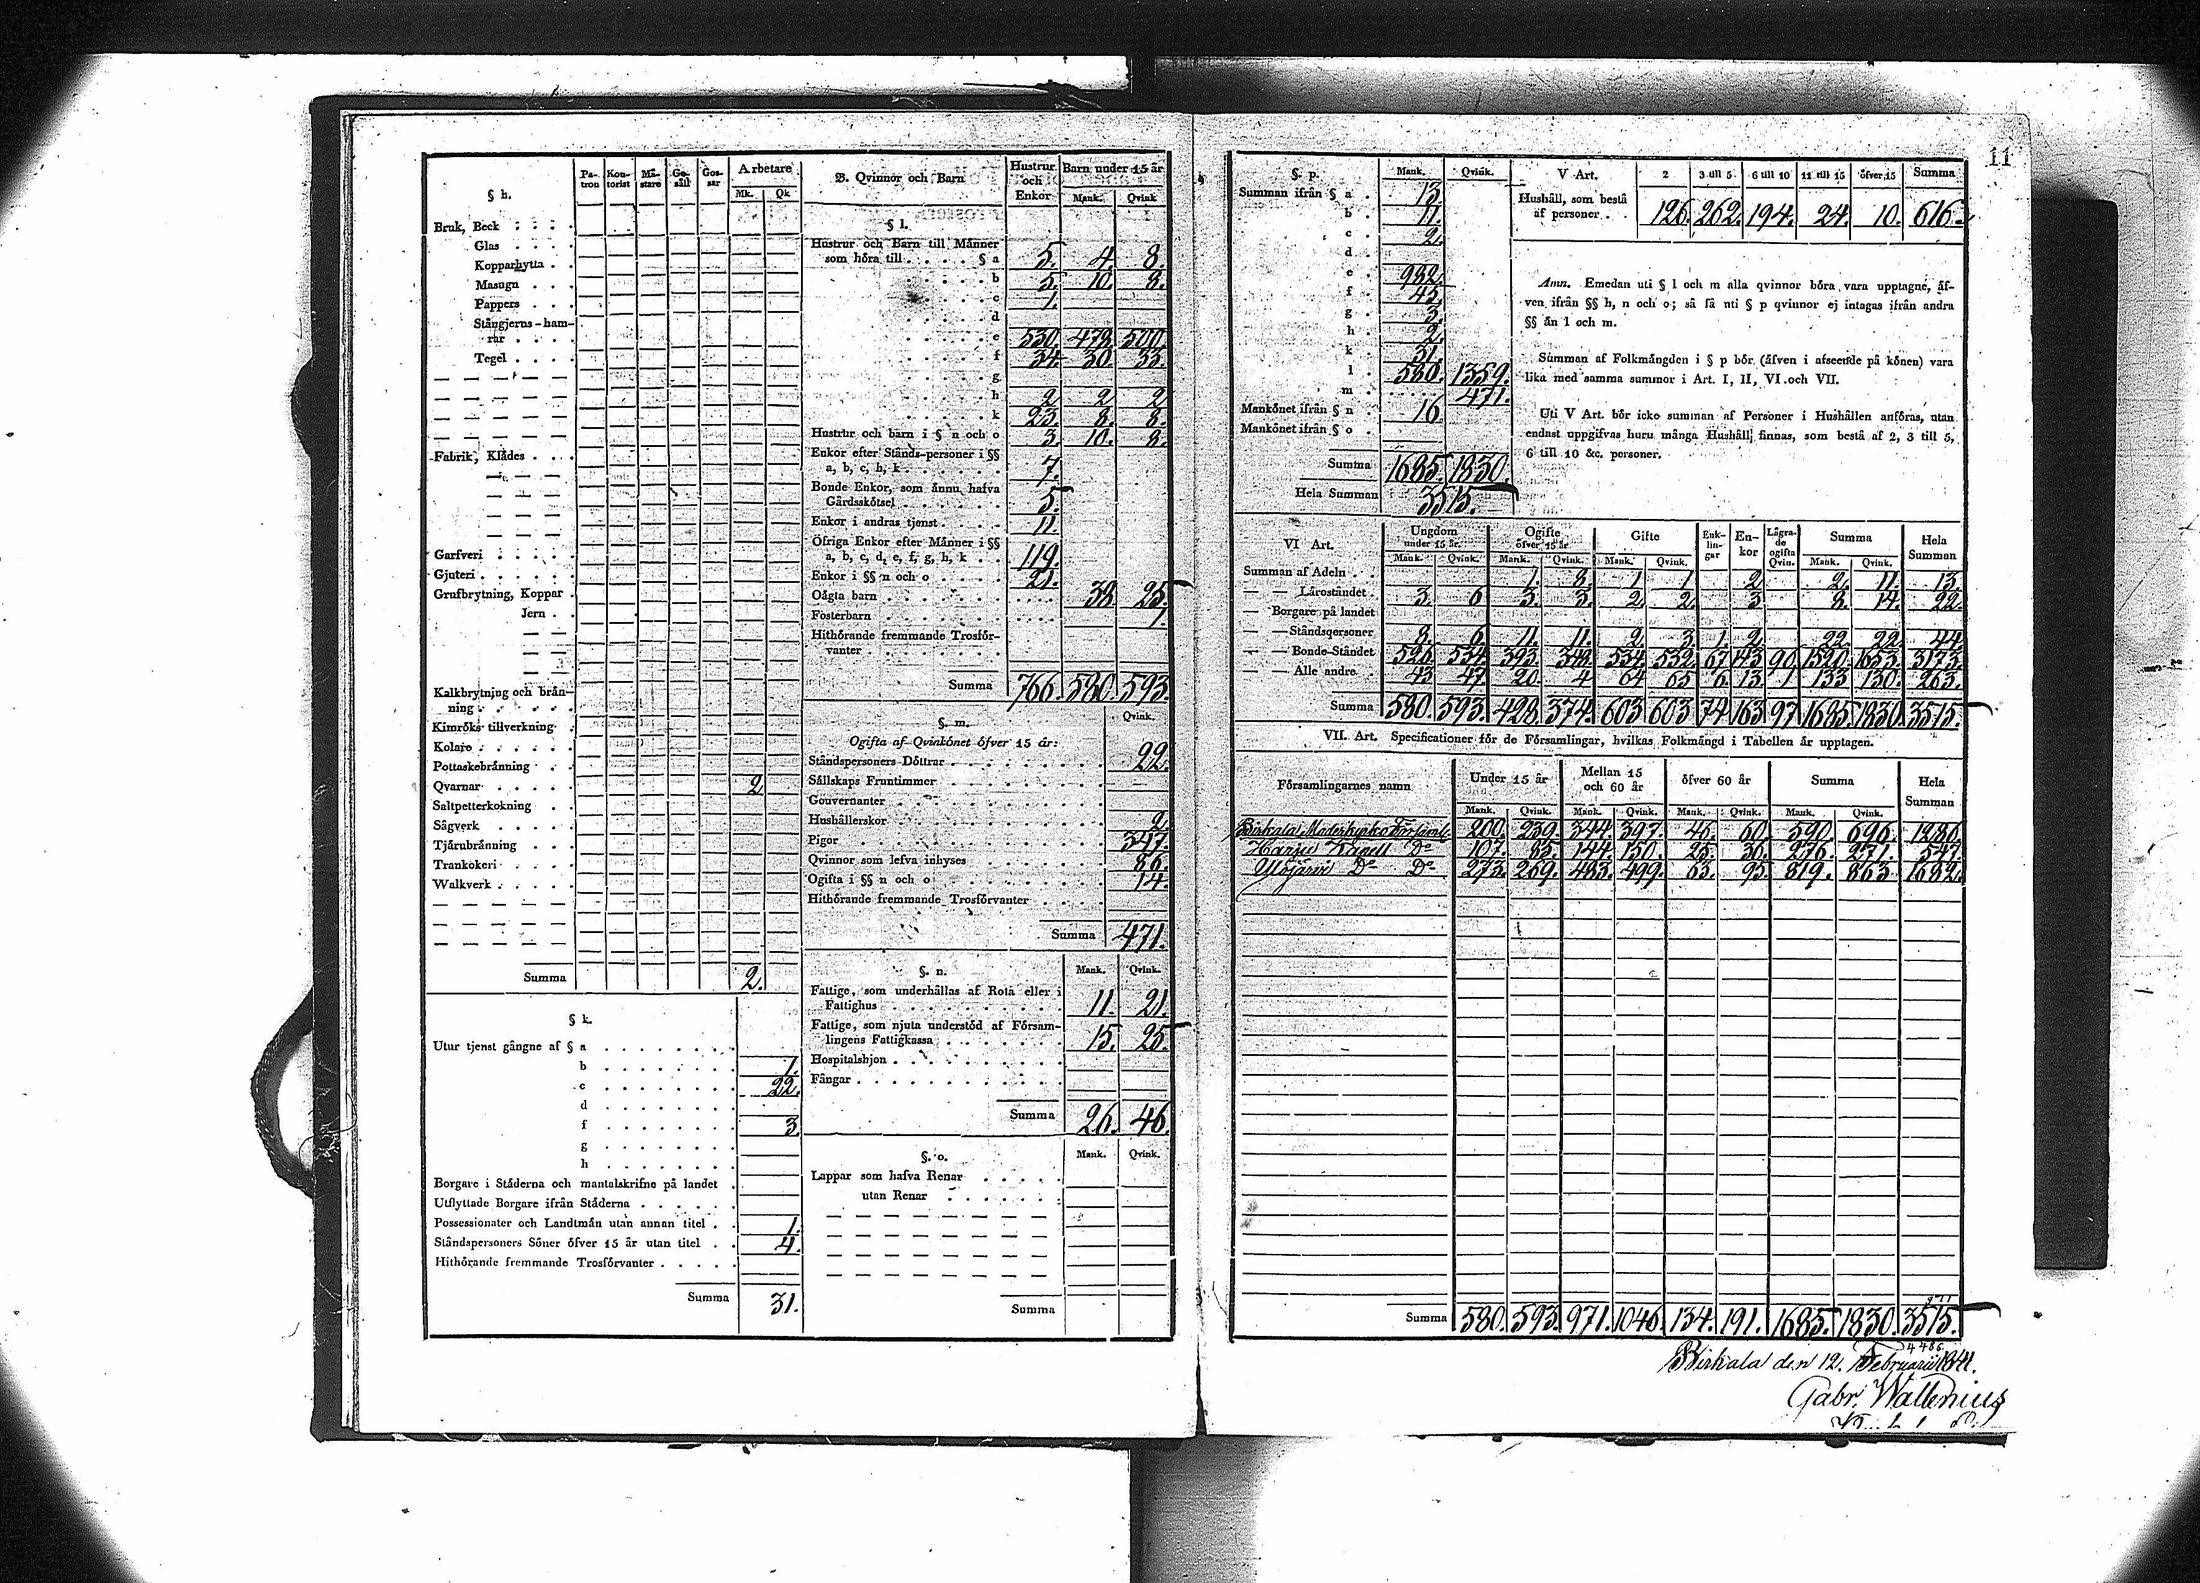 11
§ h.
Pa-tron Kon-torist Mä-stare Ge-säll Gos-sar Arbetare
Mk. Qk
Bruk, Beck
Glas
Kopparhytta
Masugn
Pappers
Stångjerns-ham-
rar
Tegel
Fabrik, Klädes
Garfveri
Gjuteri
Grufbrytning, Koppar
Jern
Kalkbrytning och brän-
ning
Kimröks tillverkning
Kolare
Pottaskebränning
Qvarnar 2
Saltpetterkokning
Sågverk
Tjärubränning
Trankokeri
Walkverk
Summa 2.
§ k.
Utur tjenst gångne af § a
b 1.
c 22.
d
f 3.
g
h
Borgare i Städerna och mantalskrifne på landet
Utflyttade Borgare ifrån Städerna
Possessionater och Landtmän utan annan titel 1.
Ståndspersoners Söner öfver 15 år utan titel 4.
Hithörande fremmande Trosförvanter
Summa 31.
B. Qvinnor och Barn
Hustrur och Enkor Barn under 15 år
Mank. Qvink
§ l.
Hustrur och Barn till Männer
som höra till § a 5. 4. 8.
b 5. 10. 8.
c 1.
d
e 530. 478. 500.
f 34. 30. 33.
g
h 2 2 2
k 23. 8. 8.
Hustrur och barn i § n och o 3. 10. 8.
Enkor efter Stånds-personer i §§
a, b, c, h, k 7.
Bonde Enkor, som ännu hafva
Gårdsskötsel 5.
Enkor i andras tjenst 11.
Öfriga Enkor efter Männer i §§
a, b, c, d, e, f, g, h, k 119.
Enkor i §§ n och o 21.
Oägta barn 38 25.
Fosterbarn 1.
Hithörande fremmande Trosför-
vanter
Summa 766. 580. 593.
§. m. Qvink.
Ogifta af Qvinkönet öfver 15 år:
Ståndspersoners Döttrar 22.
Sällskaps Fruntimmer
Gouvernanter
Hushållerskor 2.
Pigor 347.
Qvinnor som lefva inhyses 86.
Ogifta i §§ n och o 14.
Hithörande fremmande Trosförvanter
Summa 471.
§. n. Mank. Qvink.
Fattige, som underhållas af Rota eller i
Fattighus 11. 21.
Fattige, som njuta understöd af Försam-
lingens Fattigkassa 15. 25.
Hospitalshjon
Fångar
Summa 26. 46.
§. o. Mank. Qvink.
Lappar som hafva Renar
utan Renar
Summa
§. p. Mank. Qvink.
Summan ifrån § a 13.
b 11.
c 2.
d
e 982.
f 45.
g 3.
h 2.
k 31.
l 580. 1359.
m 471.
Mankönet ifrån § n 16.
Mankönet ifrån § o
Summa 1685. 1830.
Hela Summan 3515.
V Art. 2 3 till 5 6 till 10 11 till 15 öfver 15 Summa
Hushåll, som bestå
af personer 126. 262. 194. 24. 10. 616.
Anm. Emedan uti § l och m alla qvinnor böra vara upptagne, äf-
ven ifrån §§ h, n och o; så få uti § p qvinnor ej intagas ifrån andra
§§ än l och m.
Summan af Folkmängden i § p bör (äfven i afseende på könen) vara
lika med samma summor i Art. I, II, VI och VII.
Uti V Art. bör icke summan af Personer i Hushållen anföras, utan
endast uppgifvas huru många Hushåll finnas, som bestå af 2, 3 till 5,
6 till 10 &c. personer.
VI Art. Ungdom under 15 år. Ogifte öfver 15 år Gifte Enk-lin-gar En-kor Lägra-de ogifta Qvin. Summa Hela Summan
Mank. Qvink. Mank. Qvink. Mank. Qvink. Mank. Qvink.
Summan af Adeln 1. 8. 1. 1. 2. 2. 11. 13.
— — Läroståndet 3. 6 3. 3. 2. 2. 3. 8. 14. 22.
— Borgare på landet
— — Ståndspersoner 8. 6. 11. 11. 2. 3. 1. 2. 22. 22. 44.
— — Bonde-Ståndet 526. 534. 393. 348. 534. 532. 67. 143. 90. 1520. 1653. 3173.
— — Alle andre 43. 47. 20. 4 64 65 6. 13. 1 133 130. 263.
Summa 580. 593. 428. 374. 603 603 74. 163. 97 1685. 1830. 3515.
VII. Art. Specificationer för de Församlingar, hvilkas Folkmängd i Tabellen är upptagen.
Församlingarnes namn Under 15 år Mellan 15 och 60 år öfver 60 år Summa Hela Summan
Mank. Qvink. Mank. Qvink. Mank. Qvink. Mank. Qvink.
Birkala Moderkyrko Församl. 200. 239. 344. 397. 46. 60. 590. 696. 1286.
Harju Kapell Do 107. 85. 144 150. 25. 36. 276. 271. 547.
Ylöjärvi Do Do 273. 269. 483. 499. 63. 95. 819. 863. 1682.
Summa 580. 593. 971. 1046. 134. 191. 1685. 1830. 3515.
Birkala den 12. Februarii 1841.
Gabr. Wallenius